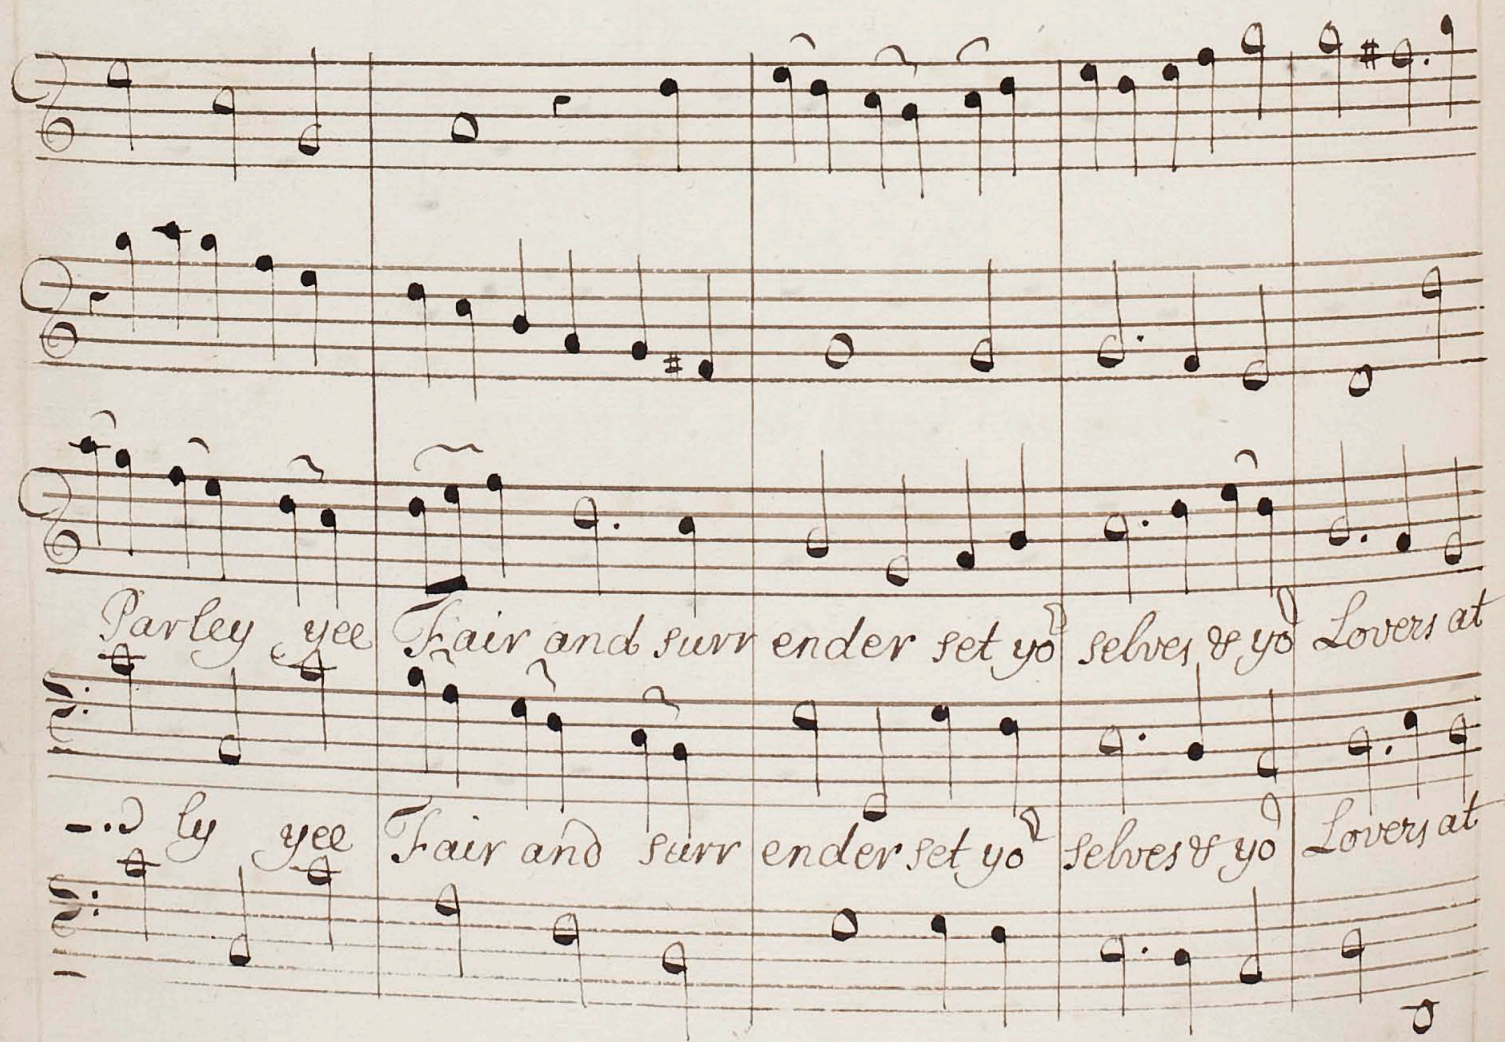 Parley yee Fair and surr ender set yor selves & yor Lovers at
ly yee Fair and surr ender set yor selves & yor Lovers at